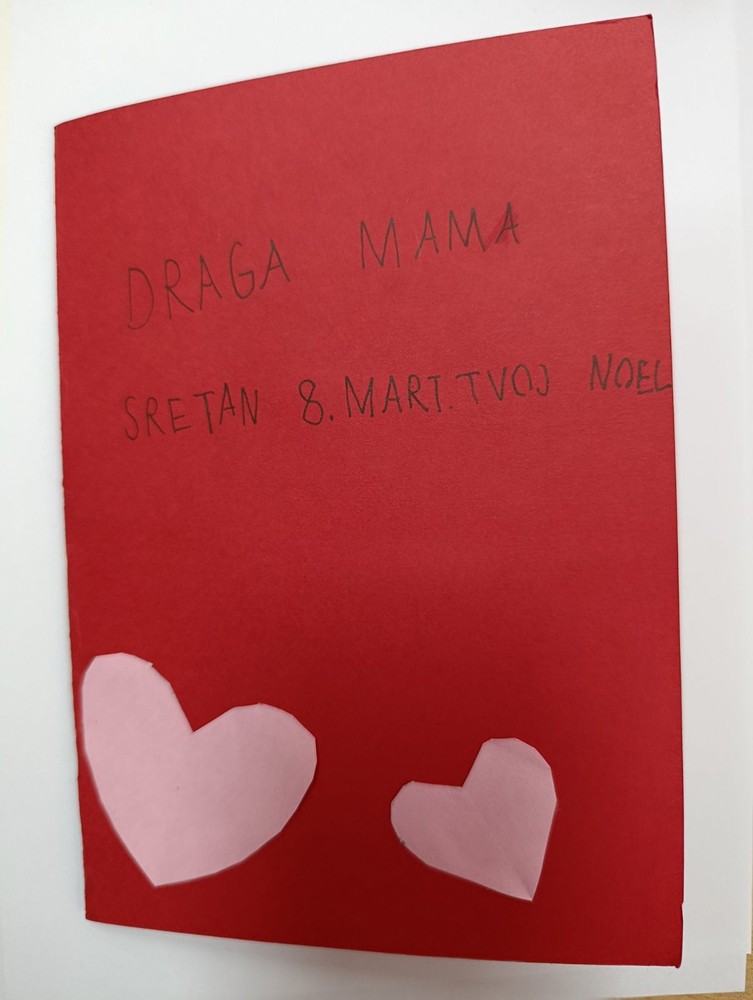 DRAGA MAMA
SRETAN 8. MART. TVOJ NOEL